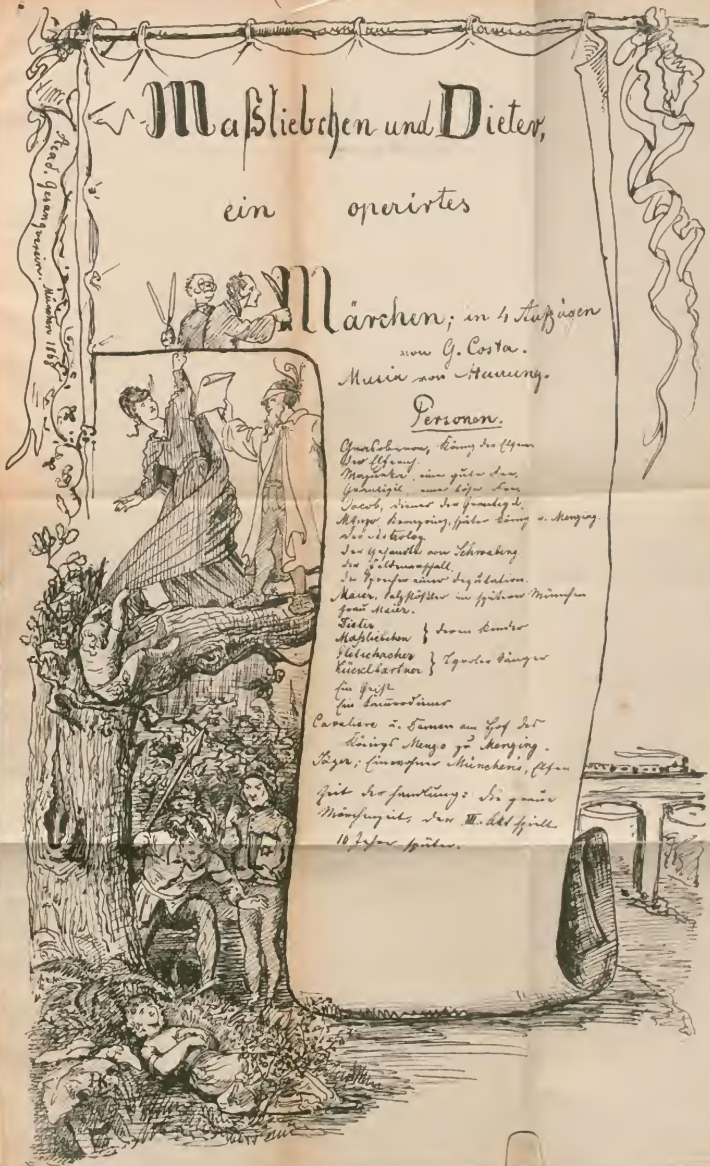 Acad. Gesangverein. München 1868
Maßliebchen und Dieter,
ein operirtes
Märchen; in 4 Aufzügen
von G. Costa.
Musik von Hennung.
Personen.
König der Elfen
Der Elfench
eine gute Fee
Grantigil, eine böse Fee
Jacob, Diener der Grantigil.
Mengo Kronprinz, später König v. Menzing.
Der Astrolog
Der Gesandte von Schwabing
Der Feldmarschall
Der Sprecher einer Deputation.
Maier, Salzstößler im spätern München
Frau Maier.
Dieter
Maßliebchen } deren Kinder
Gletschacher
Kücklbartner } Tyroler Sänger
Ein Geist
Ein
Cavaliere u. Damen am Hof des
Königs Mengo zu Menzing.
Jäger; Einwohner Münchens, Elfen
Zeit der Handlung: Die graue
Märchenzeit, der III. Akt spielt
10 Jahre später.